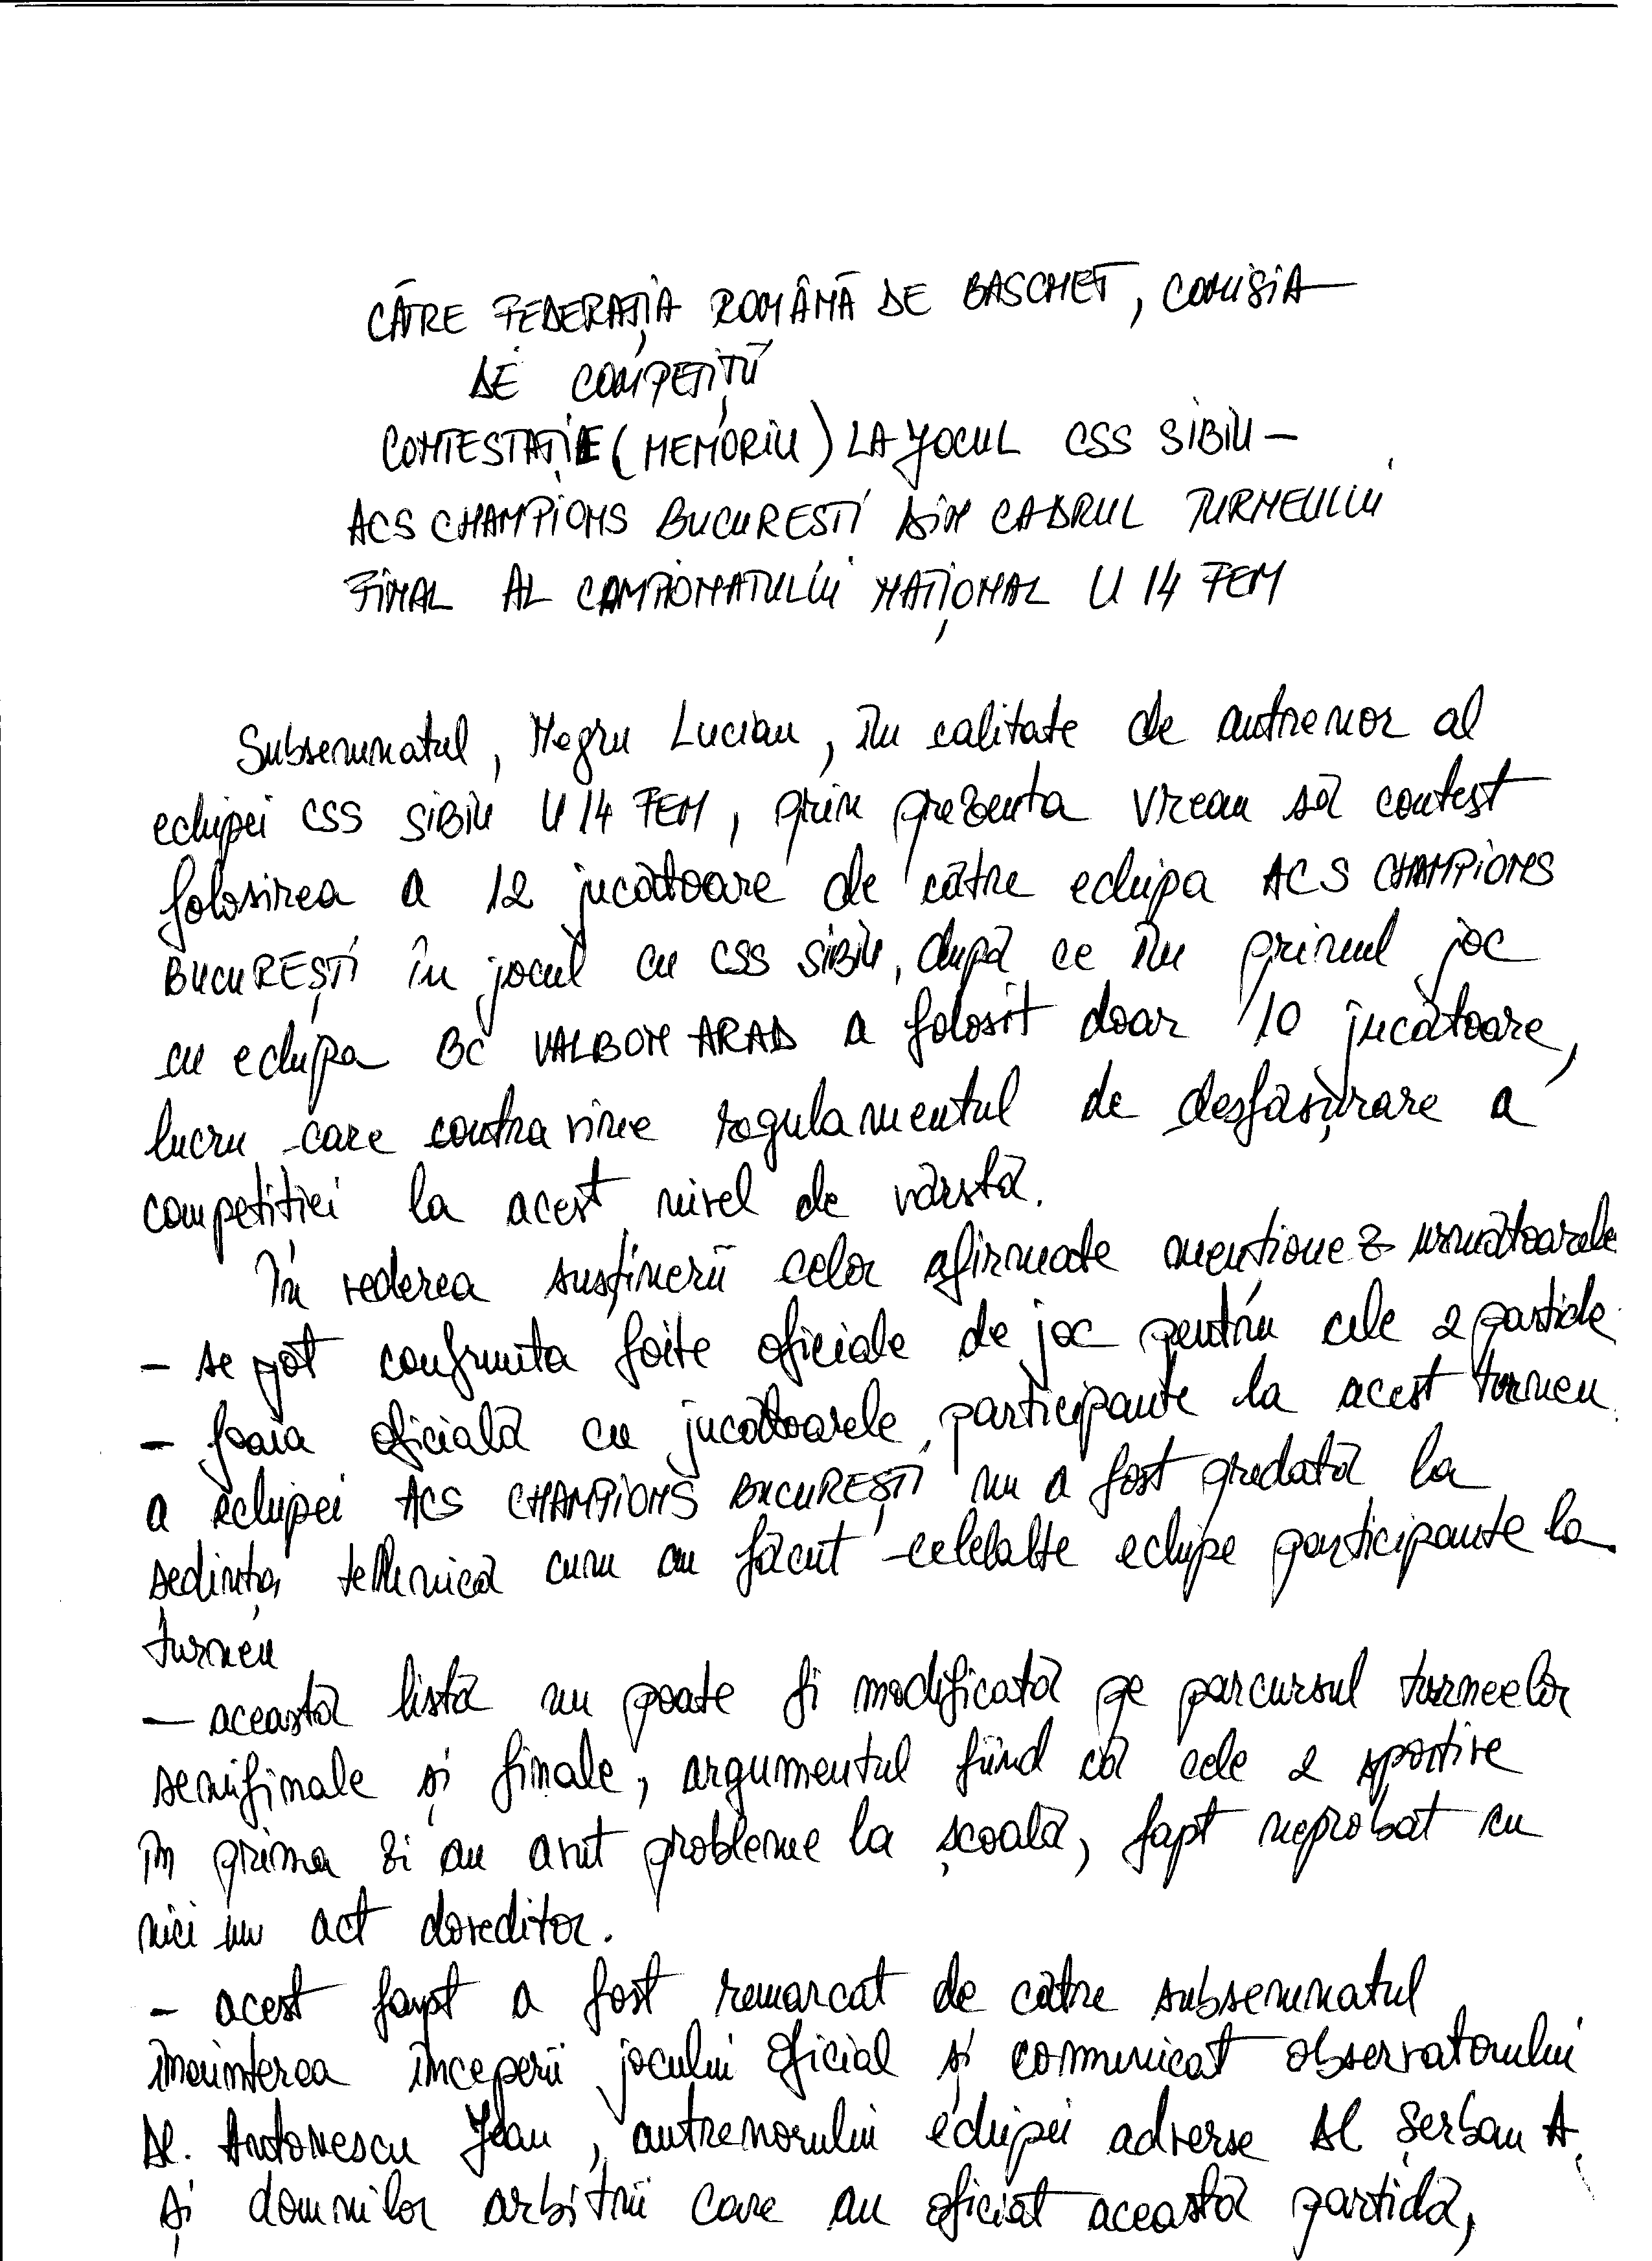 CĂTRE FEDERAȚIA ROMÂNĂ DE BASCHET, COMISIA
DE COMPETIȚII
CONTESTAȚIE (MEMORIU) LA JOCUL CSS SIBIU –
ACS CHAMPIONS BUCURESTI DIN CADRUL TURNEULUI
FINAL AL CAMPIONATULUI NAȚIONAL U 14 FEM
Subsemnatul, Negru Lucian, în calitate de antrenor al
echipei CSS SIBIU U 14 FEM, prin prezenta vreau să contest
folosirea a 12 jucătoare de către echipa ACS CHAMPIONS
BUCUREȘTI în jocul cu CSS SIBIU, după ce în primul joc
cu echipa BC VALBON ARAD a folosit doar 10 jucătoare,
lucru care contravine regulamentul de desfășurare a
competitiei la acest nivel de vârstă.
În vederea susținerii celor afirmate menționez următoarele
– se pot confrunta foile oficiale de joc pentru cele 2 partide
– foaia oficială cu jucătoarele participante la acest turneu
a echipei ACS CHAMPIONS BUCUREȘTI nu a fost predată la
sedința tehnică cum au făcut celelalte echipe participante la
turneu
– această listă nu poate fi modificată pe parcursul turneelor
semifinale și finale, argumentul fiind că cele 2 sportive
în prima zi au avut probleme la școală, fapt neprobat cu
nici un act doveditor.
– acest fapt a fost remarcat de către subsemnatul
înaintea începerii jocului oficial și comunicat observatorului
dl. Antonescu Jean, antrenorului echipei adverse dl Șerban A.
și domnilor arbitrii care au oficiat această partidă,